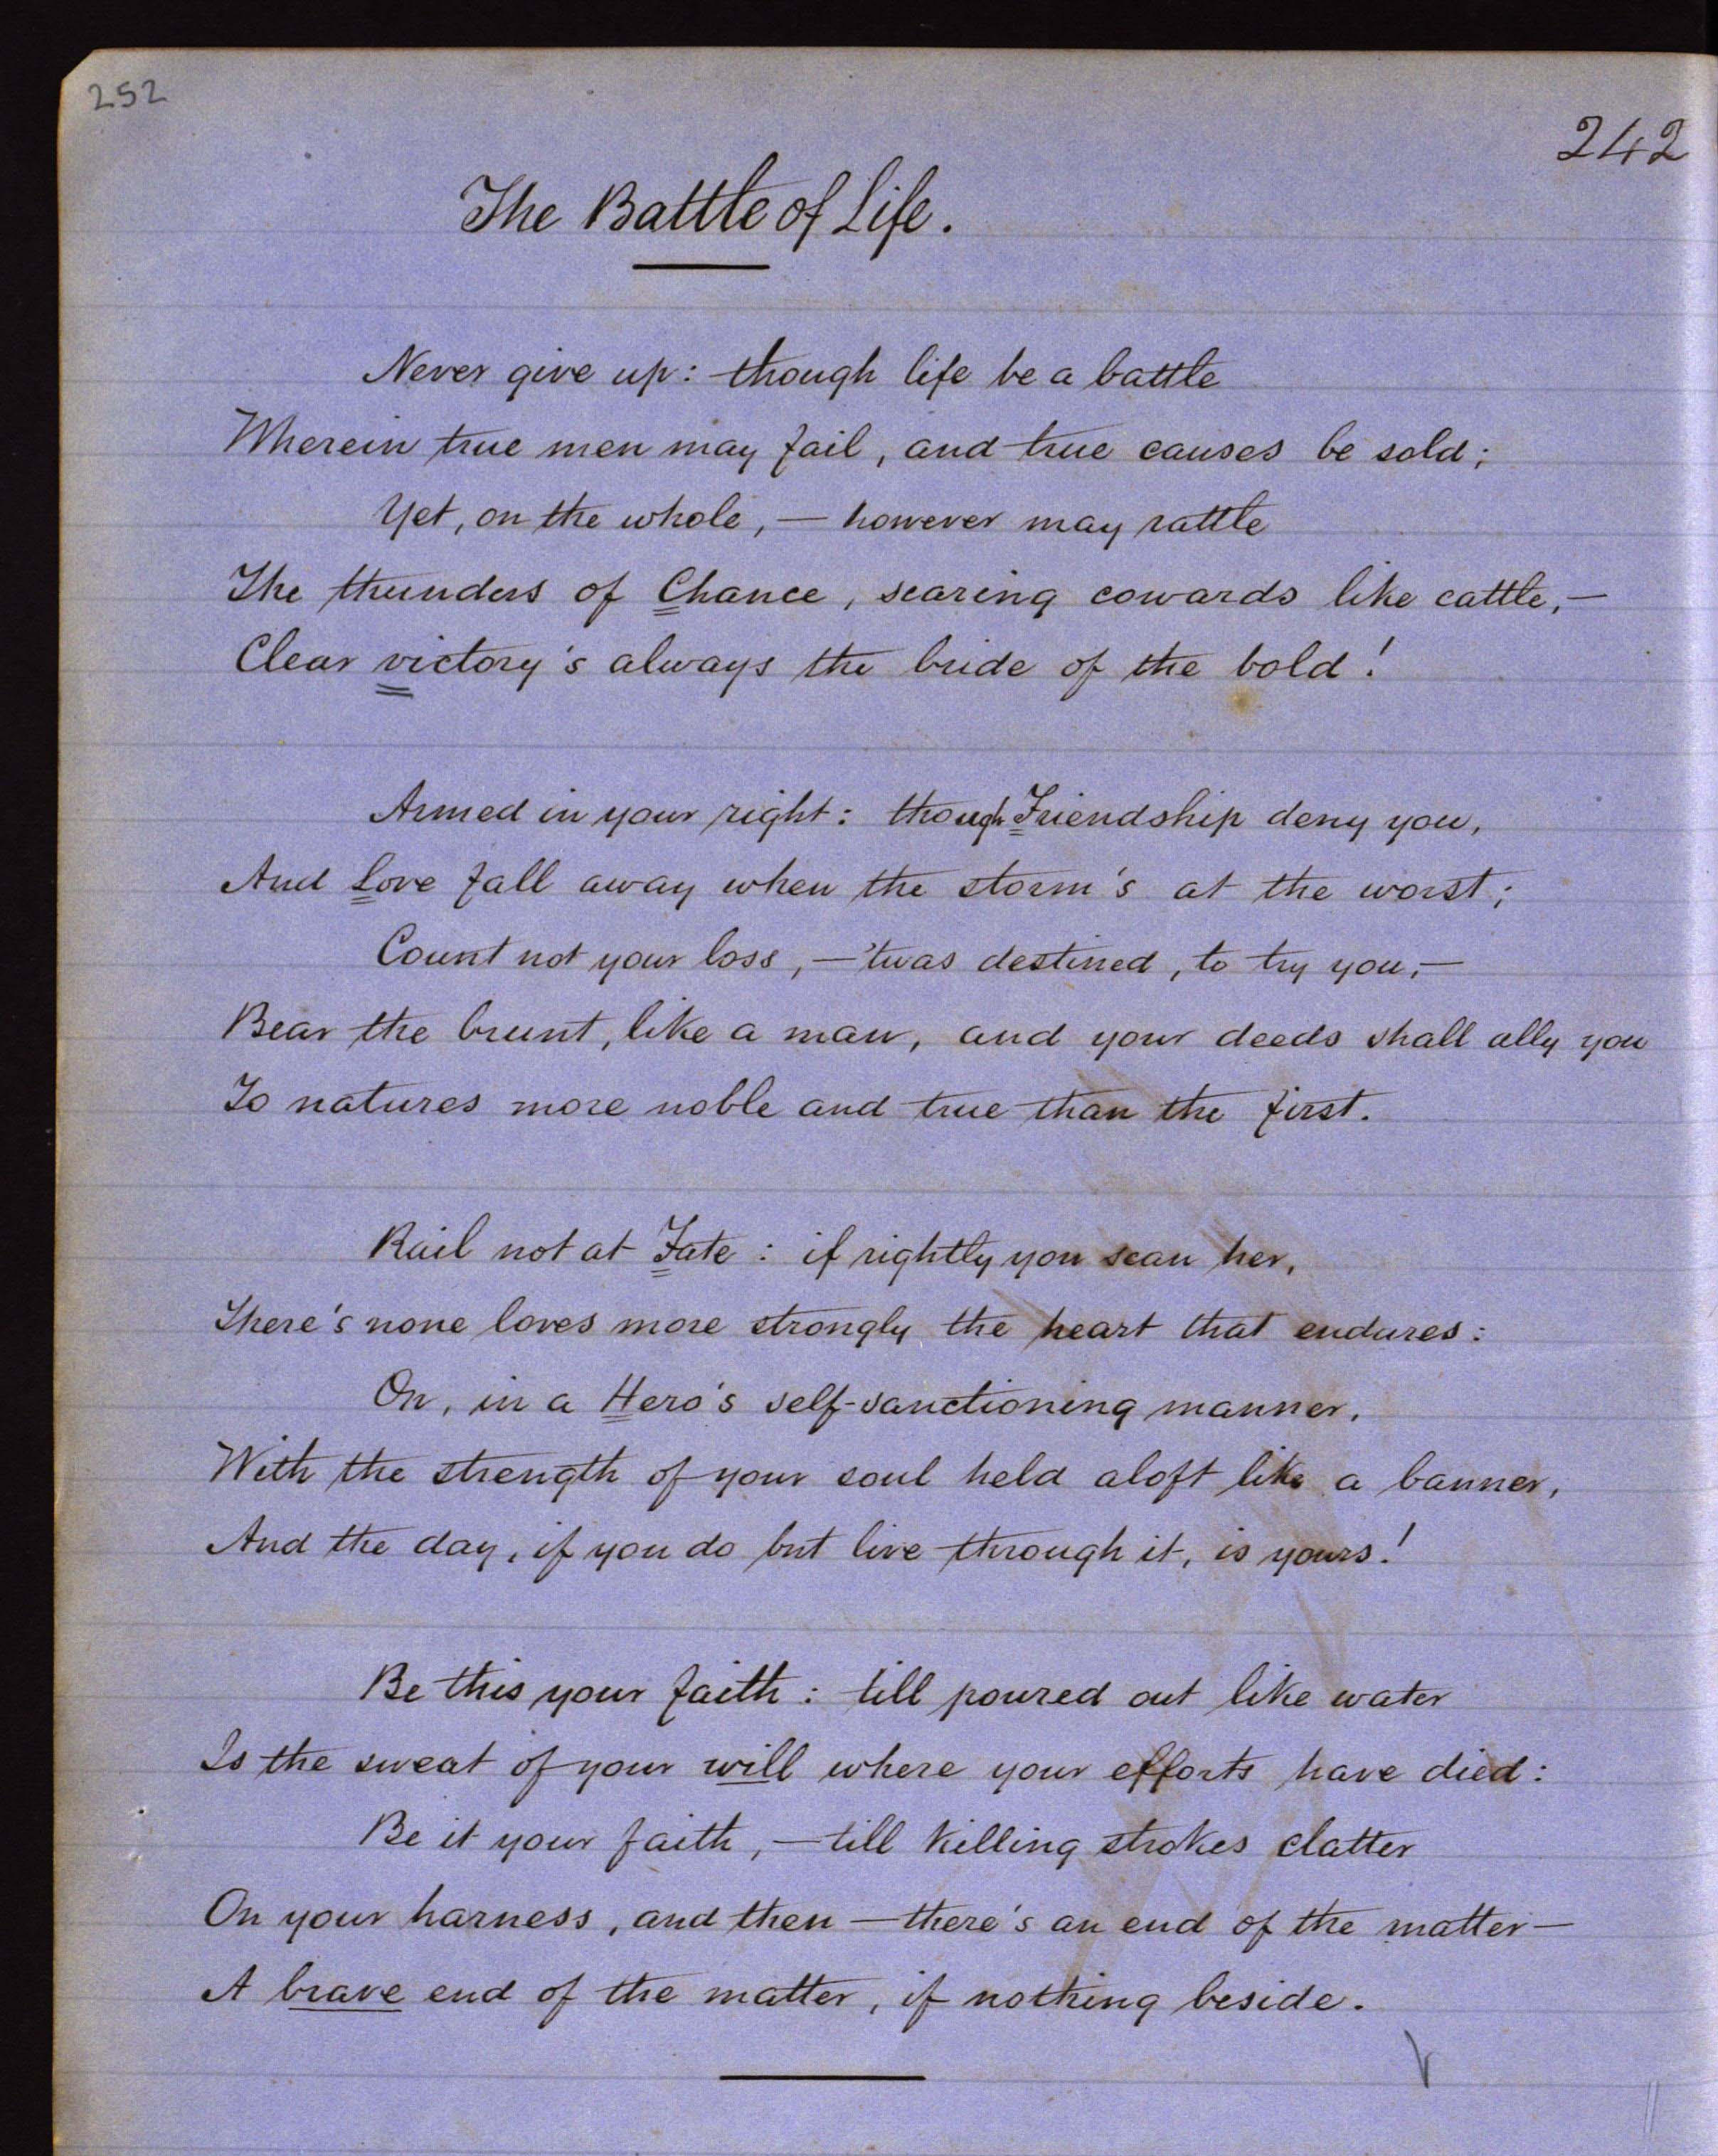 252
242
The Battle of Life.
Never give up: though life be a battle
Wherein true men may fail, and true causes be sold;
Yet, on the whole, — however may rattle
The thunders of Chance, scaring cowards like cattle, —
Clear victory's always the bride of the bold!
Armed in your right: though Friendship deny you,
And Love fall away when the storm's at the worst;
Count not your loss, — 'twas destined, to try you, —
Bear the brunt, like a man, and your deeds shall ally you
To natures more noble and true than the first.
Rail not at Fate: if rightly you scan her,
There's none loves more strongly the heart that endures:
On, in a Hero's self-sanctioning manner,
With the strength of your soul held aloft like a banner,
And the day, if you do but live through it, is yours!
Be this your faith: till poured out like water
Is the sweat of your will where your efforts have died:
Be it your faith, — till killing strokes clatter
On your harness, and then — there's an end of the matter —
A brave end of the matter, if nothing beside.